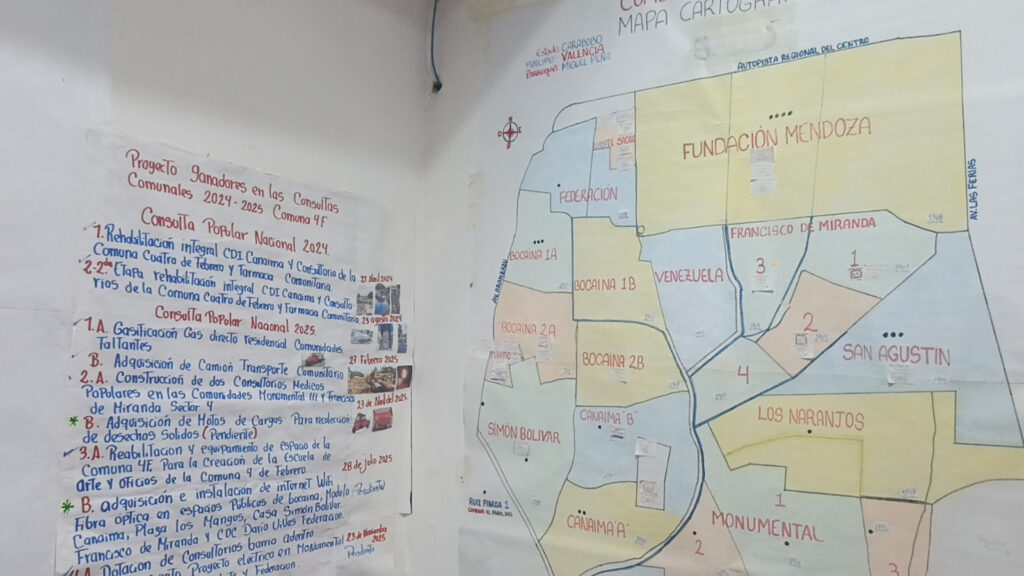 Proyecto ganadores en las Consultas
Comunales 2024-2025 Comuna 4F
Consulta Popular Nacional 2024.
1. Rehabilitación integral CDI Canaima y Consultorio de la
Comuna Cuatro de Febrero y Farmacia Comunitaria.
2-2da Etapa rehabilitación integral CDI Canaima y Consulto
rios de la Comuna Cuatro de Febrero y Farmacia Comunitaria.
Consulta Popular Nacional 2025.
1.A. Gasificación Gas directo residencial Comunidades
Faltantes
B. Adquisición de Camión Transporte Comunitario
2.A. Construcción de dos Consultorios Medicos
Populares en las Comunidades Monumental III y Francisco
de Miranda Sector 4
B. Adquisición de Motos de Cargas Para recolección
de desechos Solidos (Pendiente)
3.A. Reabilitación y equipamiento de espacio de la
Comuna 4F Para la Creación de la Escuela de
arte y oficios de la Comuna 4 de Febrero
B. adquisición e instalación de internet Wifi
Fibra optica en espacios Públicos de bocaina, Modulo (Pendiente)
Canaima, Plaza los Mangos, Casa Simón Bolívar.
Francisco de Miranda y CDC Dario Utiles Federación
4.A. Dotación de Consultorios barrio adentro
Proyecto eléctrico en Monumental
y Federación.
20 Abril 2024
25 agosto 2024
27 Febrero 2025
23 de Abril 2025.
28 de julio 2025
23 de Noviembre
2025
Pendiente
MAPA CARTOGRAF
Estado: CARABOBO
MUNICIPIO: VALENCIA
Parroquia: MIGUEL PEÑA
AUTOPISTA REGIONAL DEL CENTRO
AV. LAS FERIAS
FUNDACIÓN MENDOZA
FEDERACIÓN
FRANCISCO DE MIRANDA
BOCAINA 1A
BOCAINA 1B
VENEZUELA
3
1
BOCAINA 2A
BOCAINA 2B
2
4
SAN AGUSTIN
SIMÓN BOLIVAR
CANAIMA "B"
LOS NARANJOS
CANAIMA "A"
1
MONUMENTAL
2
3
RUIZ PINEDA 1